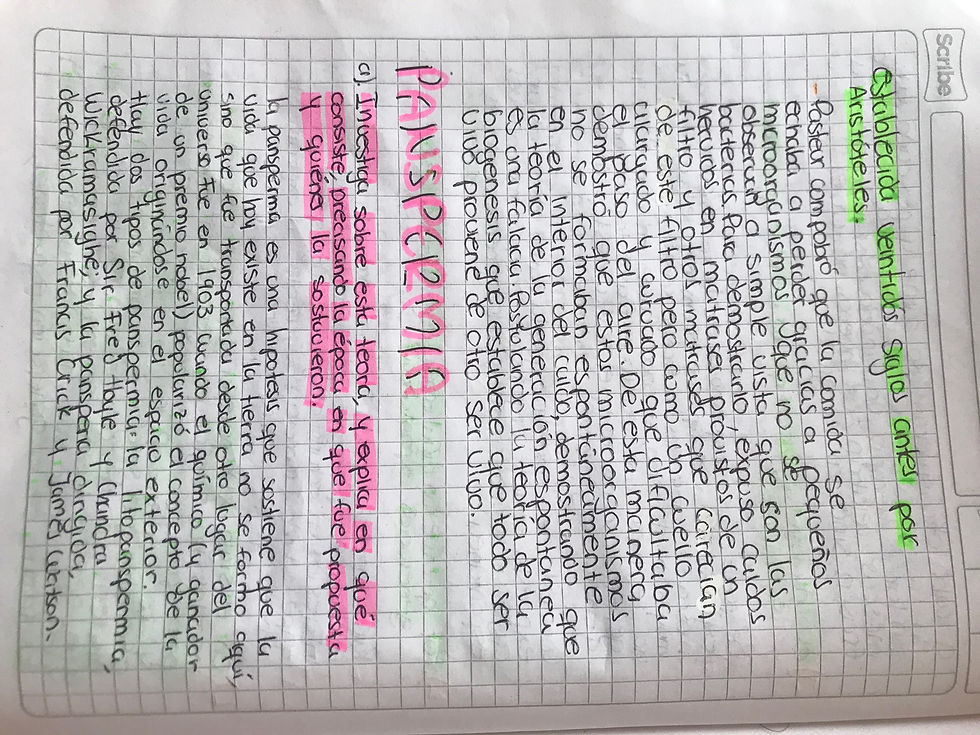 Scribe
establecida veintidós siglos antes por
Aristóteles.
- Pasteur comprobó que la comida se
echaba a perder gracias a pequeños
microorganismos y que no se
observan a simple vista que son las
bacterias. Para demostrarlo, expuso caldos
hervidos en matrases provistos de un
filtro y otros matraces que carecían
de este filtro pero como un cuello
alargado y curvado que dificultaba
el paso del aire. De esta manera
demostró que estos microorganismos
no se formaban espontáneamente
en el interior del caldo, demostrando que
la teoría de la generación espontanea
es una falacia. Postulando la teoría de la
biogenesis que establece que todo ser
vivo proviene de otro ser vivo.
PANSPERMIA
a). Investiga sobre esta teoría, y explica en qué
consiste, precisando la época en que fue propuesta
y quiénes la sostuvieron.
la panspermia es una hipótesis que sostiene que la
vida que hoy existe en la tierra no se formó aquí,
sino que fue transportada desde otro lugar del
universo. Fue en 1903 cuando el químico (y ganador
de un premio nobel) popularizó el concepto de la
vida originándose en el espacio exterior.
Hay dos tipos de panspermia: la litopanspermia,
defendida por Sir Fred Hoyle y Chandra
Wickramasighe, y la panspermia dirigida,
defendida por Francis Crick y James Watson.